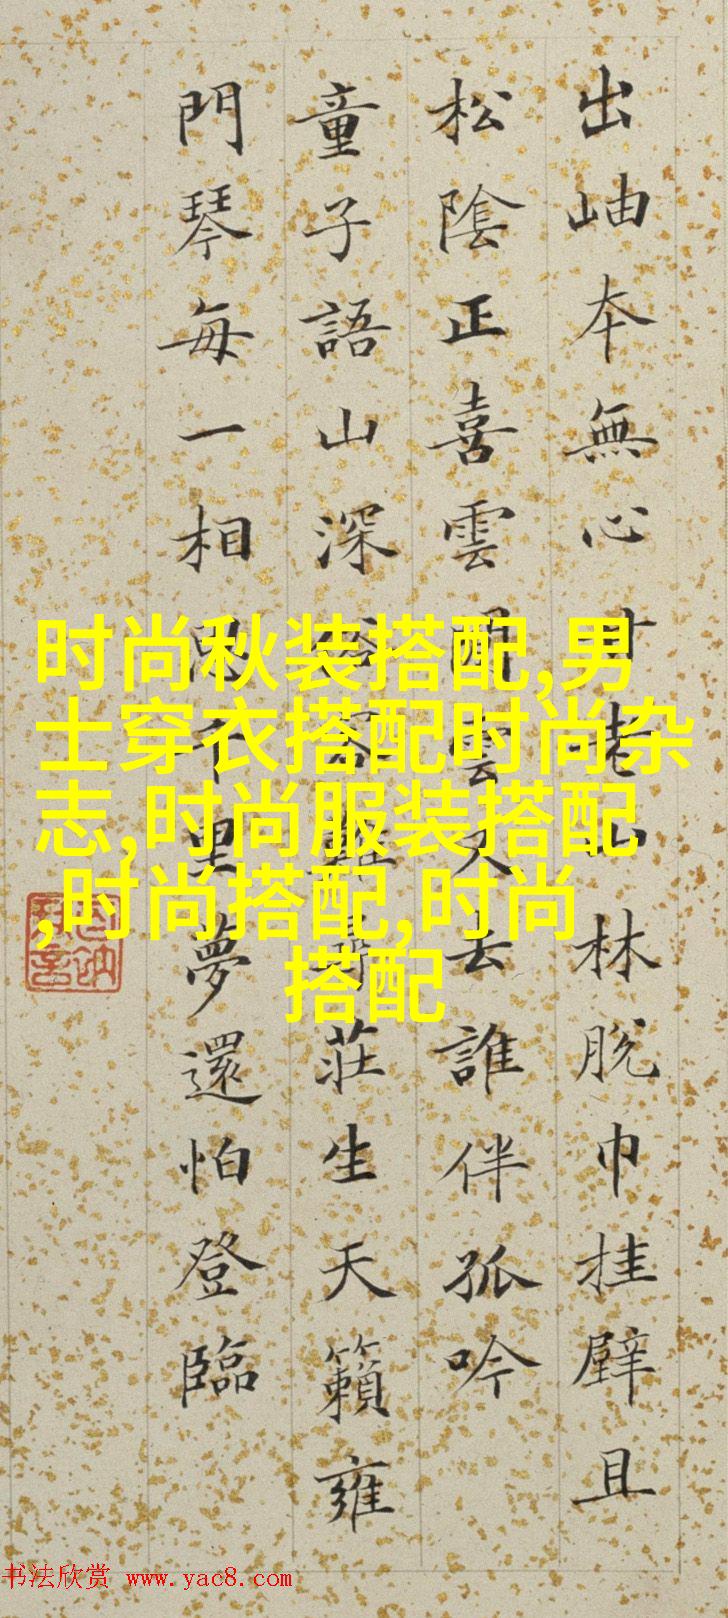 出岫本無心甘老山林脫巾挂壁且
松陰正喜雲雲又去誰伴孤吟
童子語山深客難尋莊生天籟雍
門琴每一相思千里夢還怕登臨
时尚秋装搭配,男
士穿衣搭配时尚杂
志,时尚服装搭配
,时尚搭配,时尚
搭配
书法欣赏 www.yac8.com